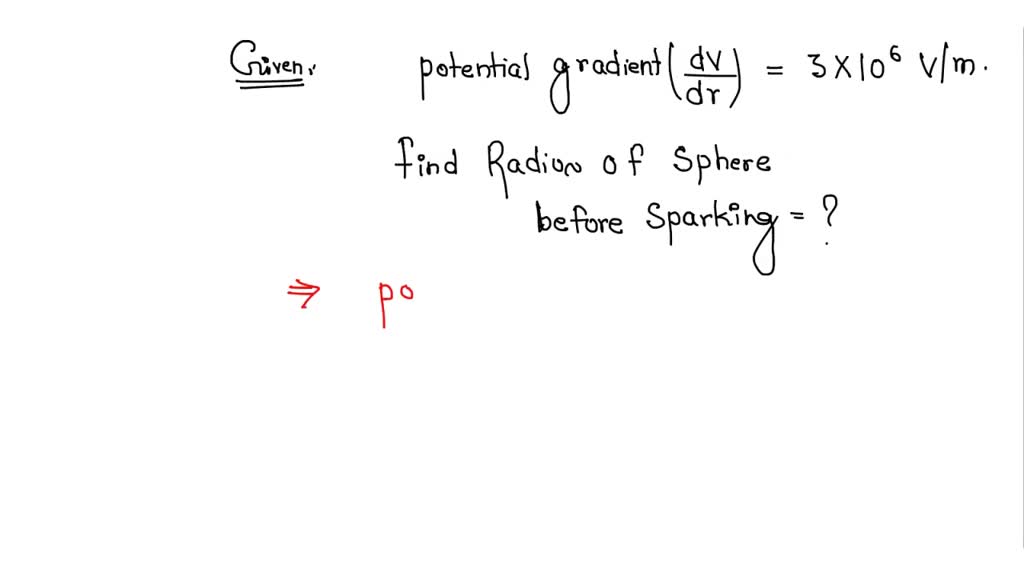 Given. potential gradient (dV/dr) = 3X10⁶ V/m.
find Radius of Sphere
before Sparking = ?
⇒ po